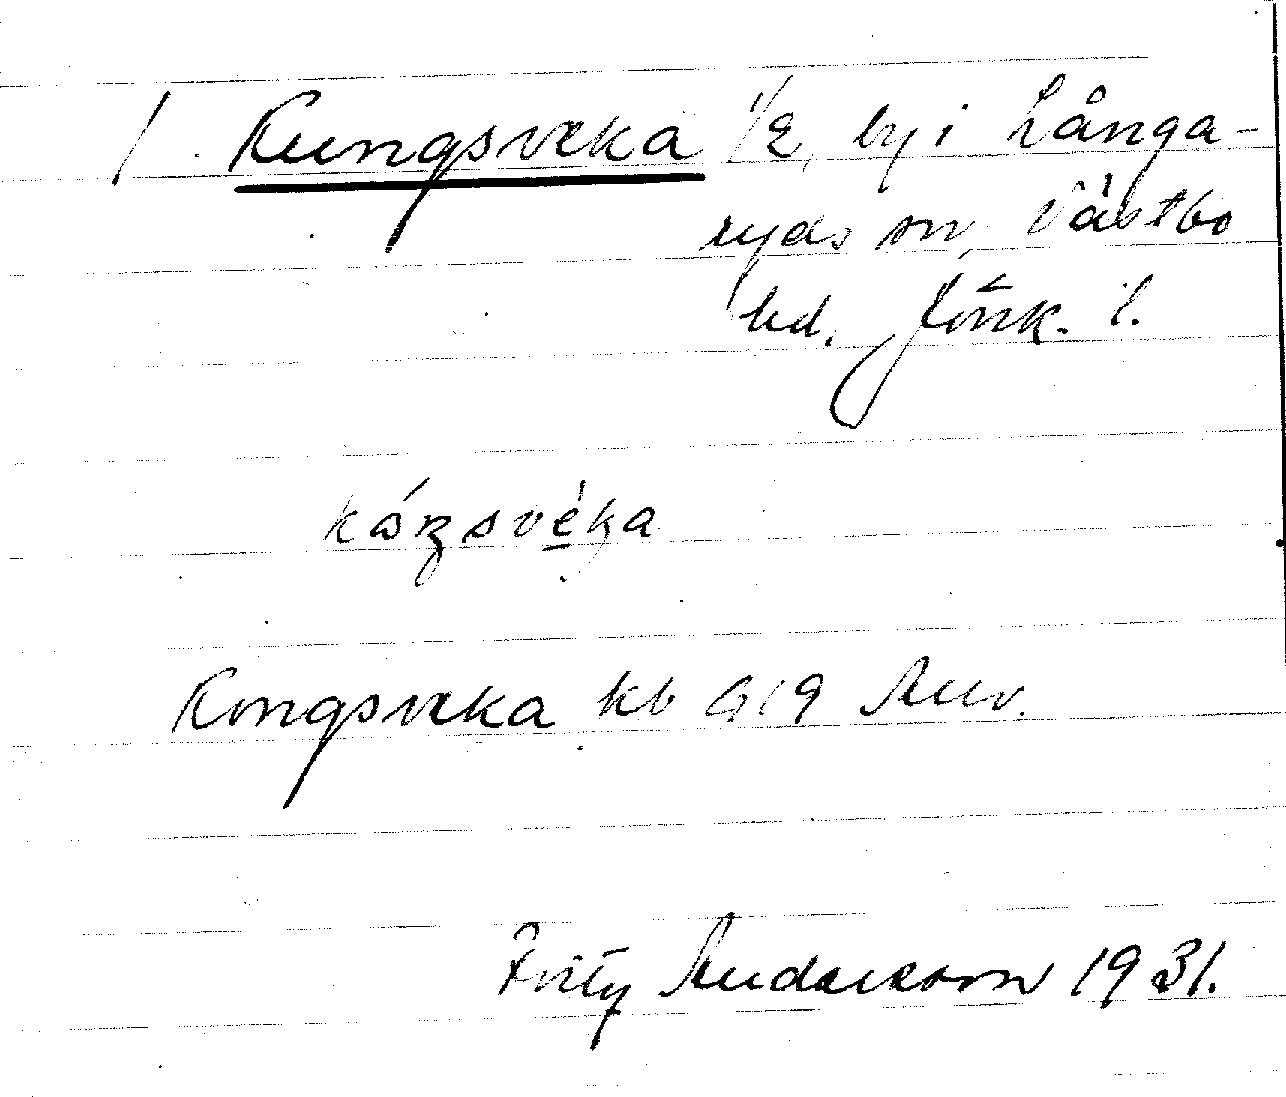 /. Kungsveka 1/2, by i Långa-
ryds sn, Västbo
hd. Jönk. l.
Kongsveka kb A19 Anv.
Fritz Andersson 1931.